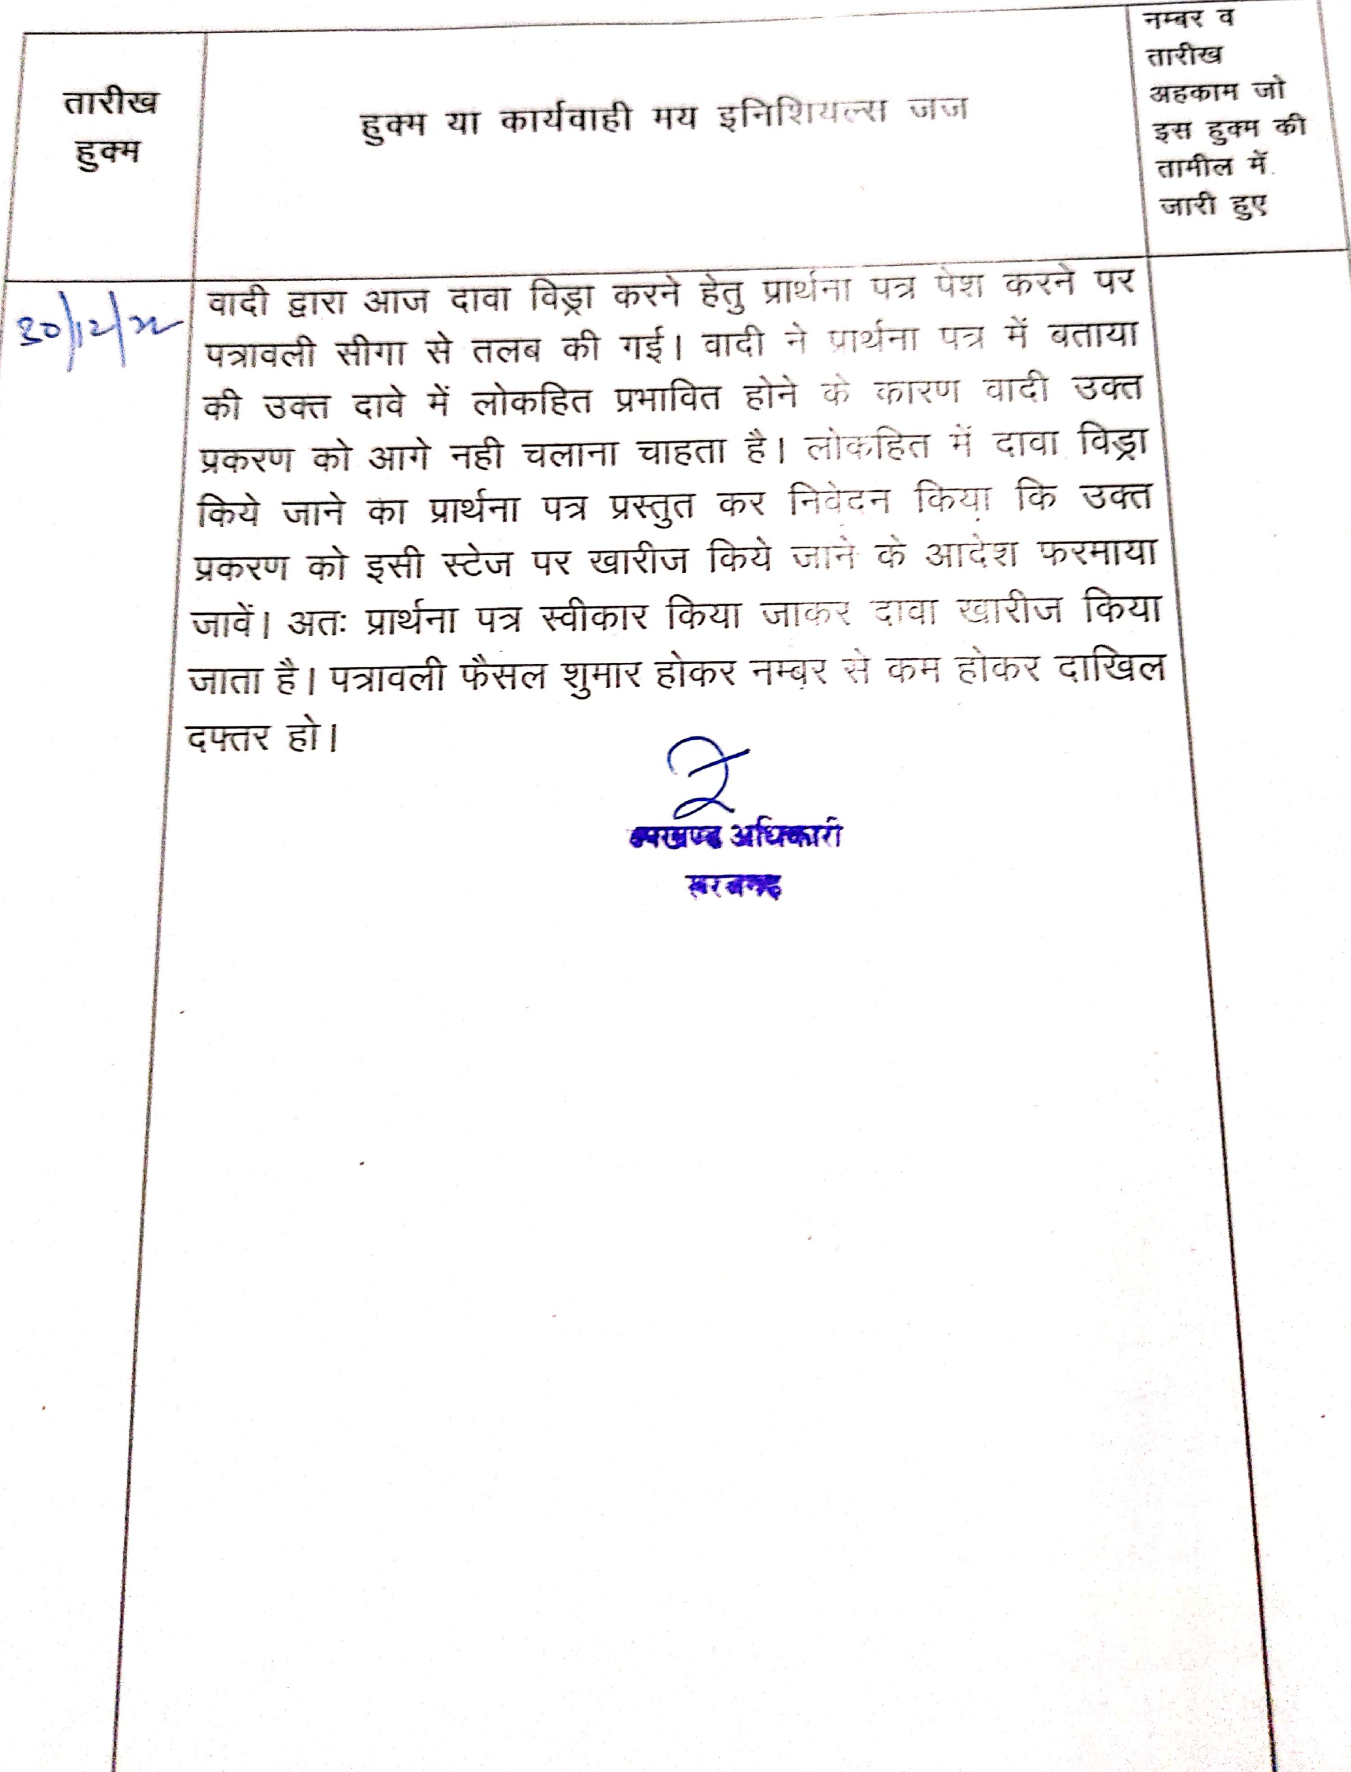 तारीख
हुक्म
हुक्म या कार्यवाही मय इनिशियल्स जज
नम्बर व
तारीख
अहकाम जो
इस हुक्म की
तामील में
जारी हुए
30/12/22
वादी द्वारा आज दावा विड्रा करने हेतु प्रार्थना पत्र पेश करने पर
पत्रावली सीगा से तलब की गई। वादी ने प्रार्थना पत्र में बताया
की उक्त दावे में लोकहित प्रभावित होने के कारण वादी उक्त
प्रकरण को आगे नही चलाना चाहता है। लोकहित में दावा विड्रा
किये जाने का प्रार्थना पत्र प्रस्तुत कर निवेदन किया कि उक्त
प्रकरण को इसी स्टेज पर खारीज किये जाने के आदेश फरमाया
जावें। अतः प्रार्थना पत्र स्वीकार किया जाकर दावा खारीज किया
जाता है। पत्रावली फैसल शुमार होकर नम्बर से कम होकर दाखिल
दफ्तर हो।
उपखण्ड अधिकारी